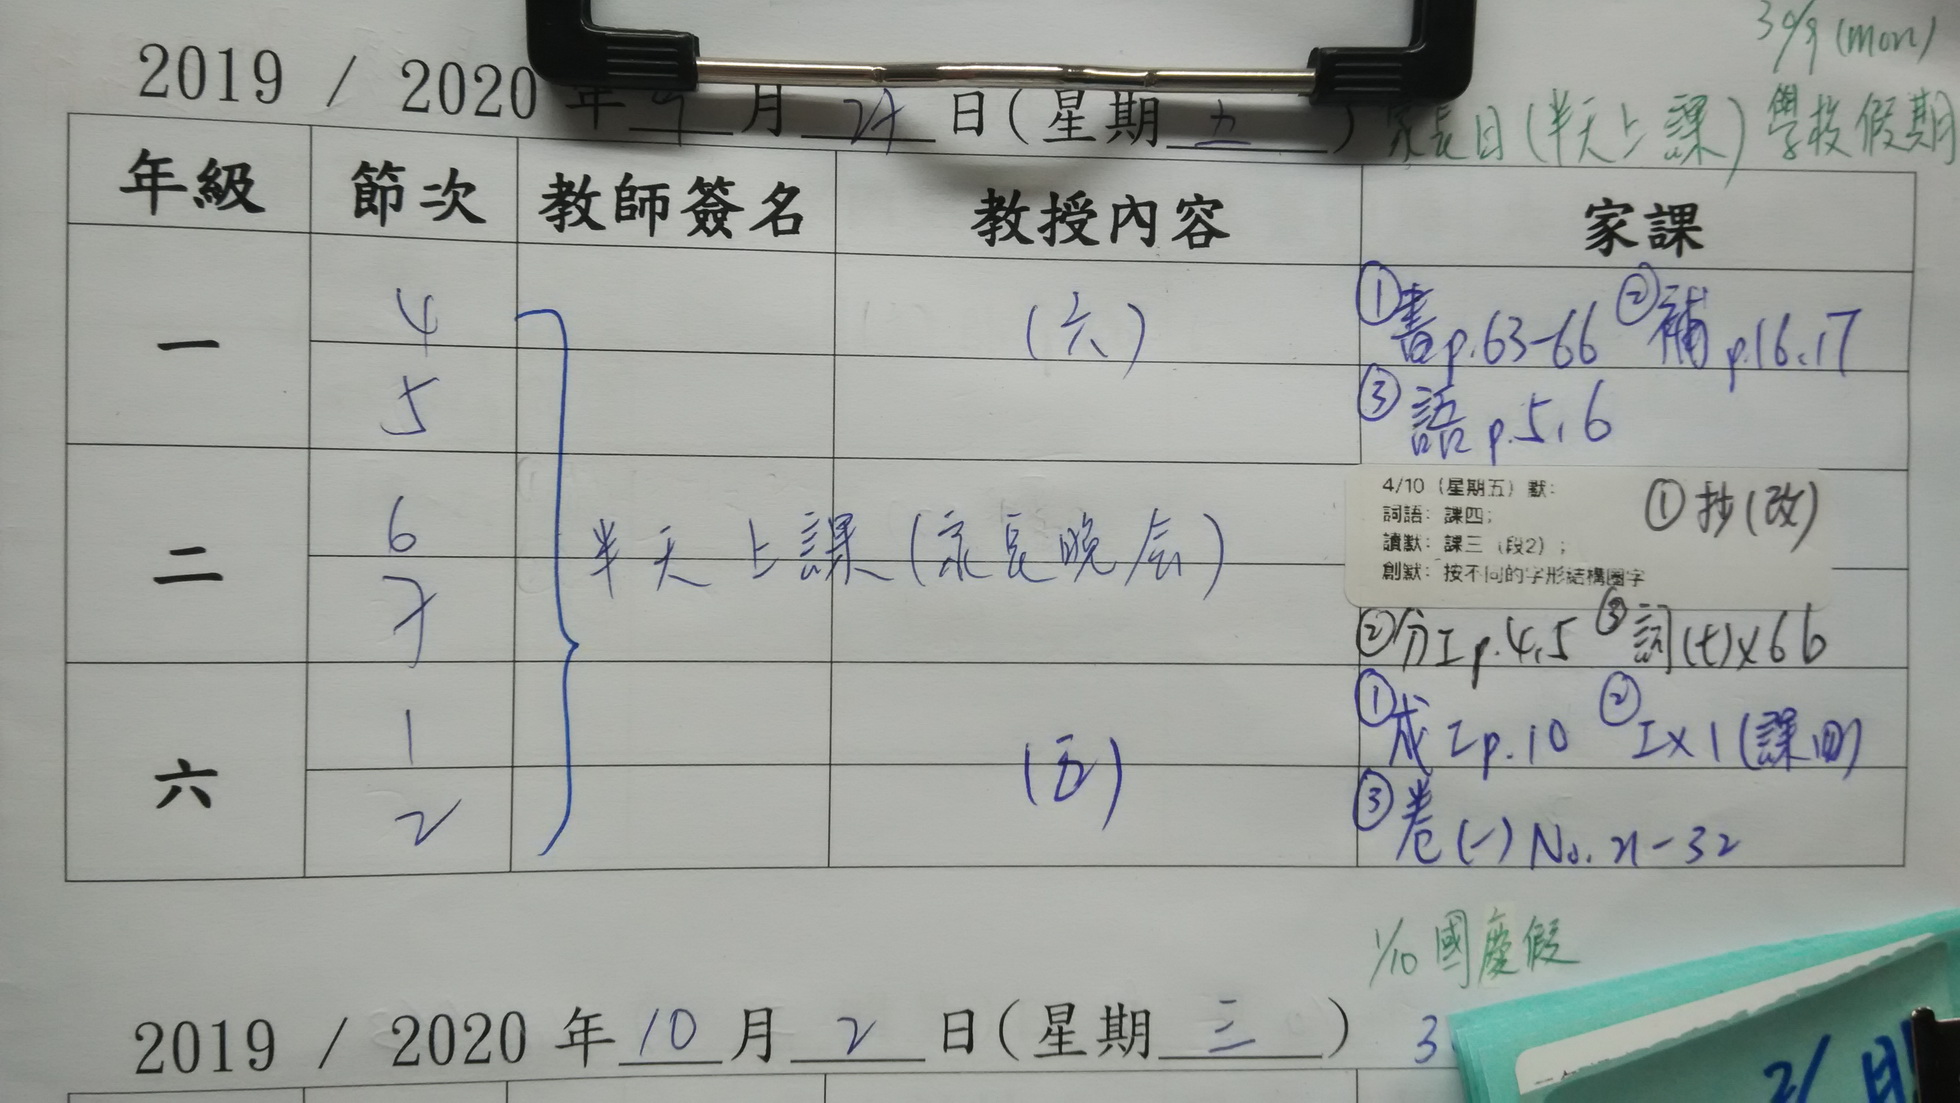 30/9 (mon)
2019 / 2020 年 9 月 27 日(星期 五 ) 家長日(半天上課) 學校假期
年級 節次 教師簽名 教授內容 家課
一 4 (六) ①書p.63-66 ②補p.16,17
5 ③語p.5,6
4/10 (星期五) 默: ①抄(改)
詞語: 課四;
讀默: 課三 (段2) ;
創默: 按不同的字形結構圈字
二 6 半天上課(家長晚会)
7 ②分工p.4,5 ③詞(七)x6b
六 1 (五) ①成工p.10 ②工x1(課四)
2 ③卷(一)No.21-32
1/10 國慶假
2019 / 2020 年 10 月 2 日(星期 三 ) 3
2/